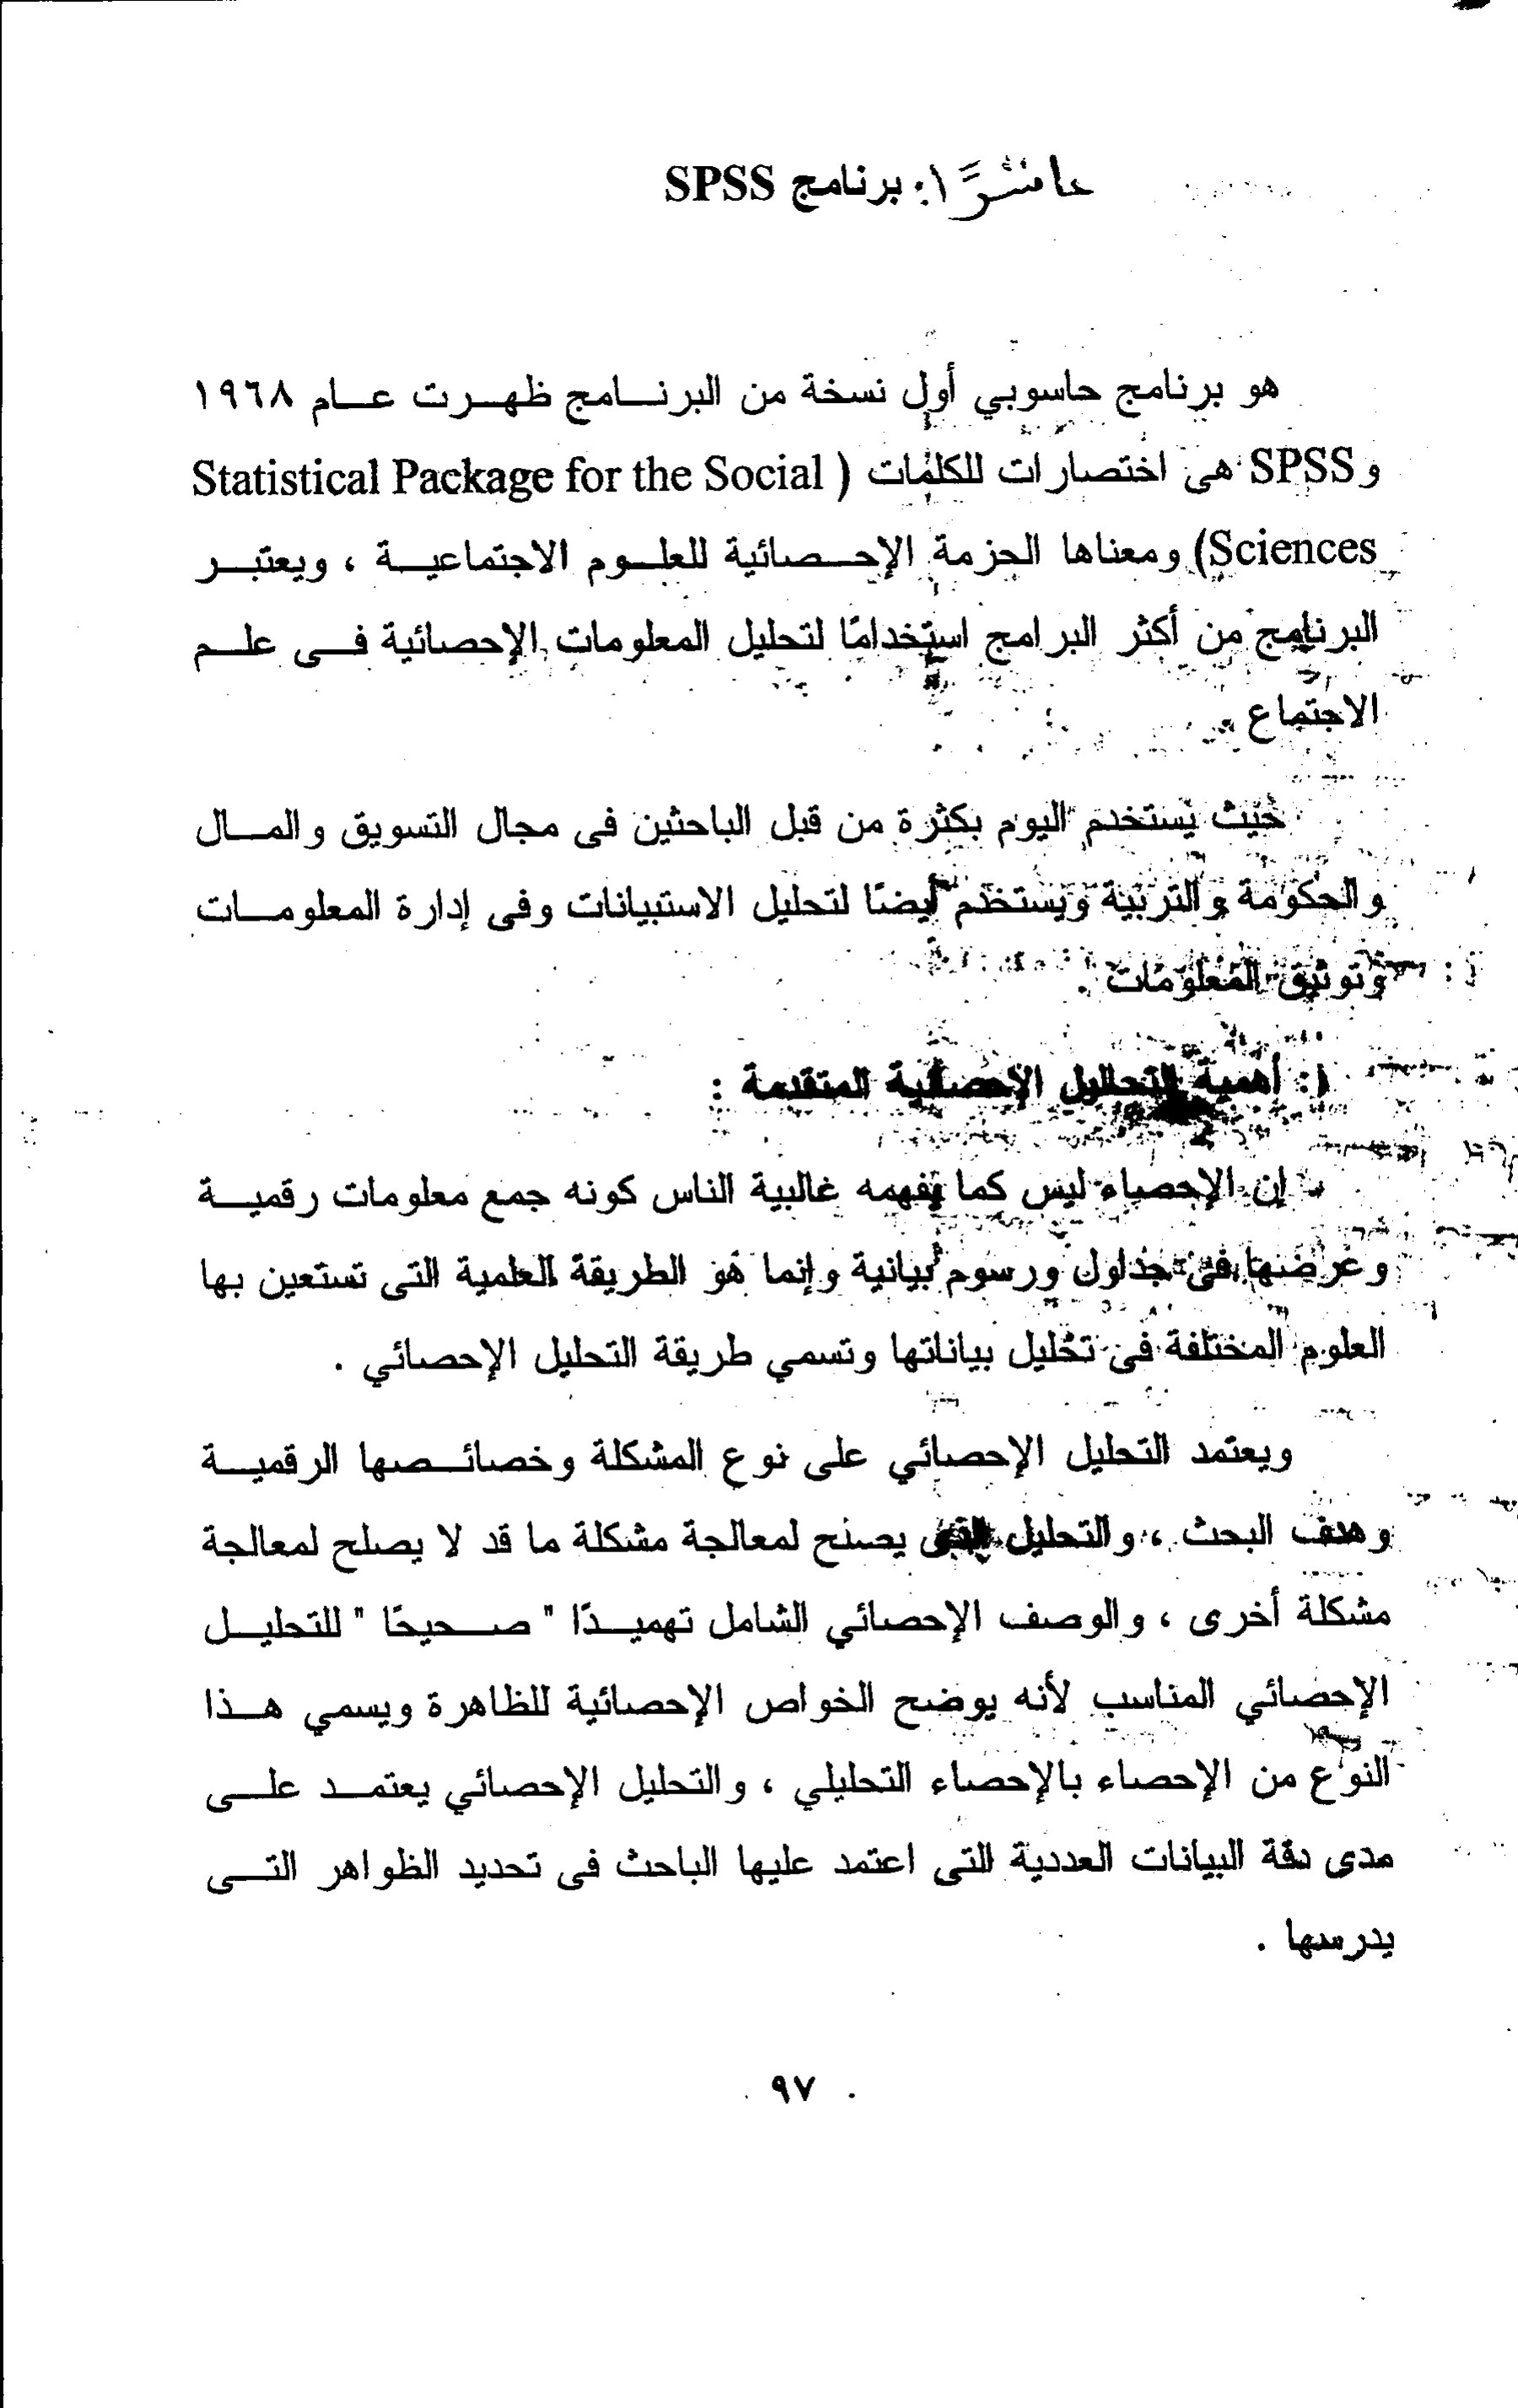 عاشرًا: برنامج SPSS
هو برنامج حاسوبي أول نسخة من البرنامج ظهرت عام ١٩٦٨
وSPSS هى اختصارات للكلمات ( Statistical Package for the Social
Sciences) ومعناها الحزمة الإحصائية للعلوم الاجتماعية ، ويعتبر
البرنامج من أكثر البرامج استخدامًا لتحليل المعلومات الإحصائية فى علم
الاجتماع .
حيث يستخدم اليوم بكثرة من قبل الباحثين فى مجال التسويق والمال
والحكومة والتربية ويستخدم أيضًا لتحليل الاستبيانات وفى إدارة المعلومات
وتوثيق المعلومات .
١: أهمية التحاليل الإحصائية المتقدمة :
إن الإحصاء ليس كما يفهمه غالبية الناس كونه جمع معلومات رقمية
وعرضها فى جداول ورسوم بيانية وإنما هو الطريقة العلمية التى تستعين بها
العلوم المختلفة فى تحليل بياناتها وتسمي طريقة التحليل الإحصائي .
ويعتمد التحليل الإحصائي على نوع المشكلة وخصائصها الرقمية
وهدف البحث ، والتحليل يصلح لمعالجة مشكلة ما قد لا يصلح لمعالجة
مشكلة أخرى ، والوصف الإحصائي الشامل تهميدًا " صحيحًا " للتحليل
الإحصائي المناسب لأنه يوضح الخواص الإحصائية للظاهرة ويسمي هذا
النوع من الإحصاء بالإحصاء التحليلي ، والتحليل الإحصائي يعتمد على
مدى دقة البيانات العددية التى اعتمد عليها الباحث فى تحديد الظواهر التى
يدرسها .
٩٧